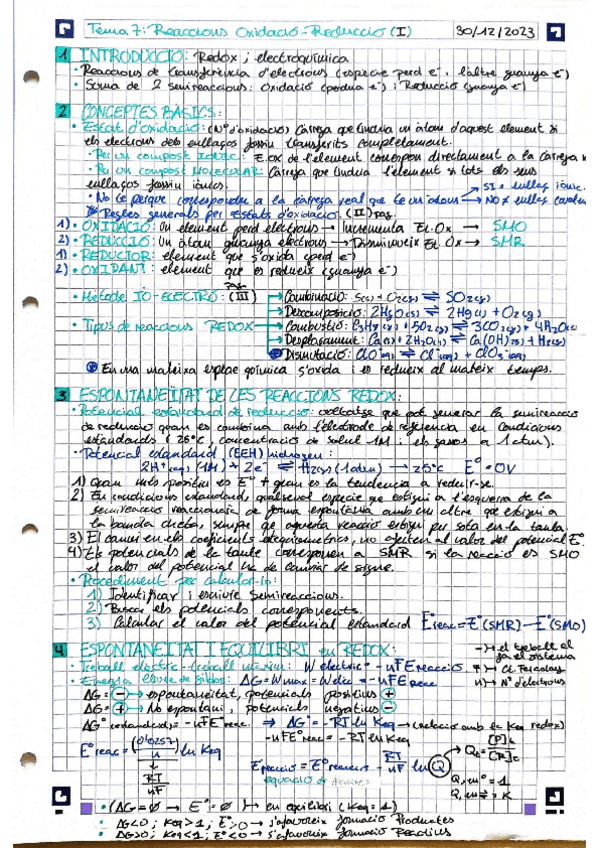 Tema 7: Reaccions Oxidació-Reducció (I) 30/12/2023
1 INTRODUCCIÓ: Redox ; electroquímica
• Reaccions de transferència d'electrons (espècie perd e⁻, l'altre guanya e⁻)
• Suma de 2 semireaccions: Oxidació (perdua e⁻) i Reducció (guanya e⁻)
2 CONCEPTES BÀSICS:
• Estat d'oxidació: (Nº d'oxidació) Càrrega que tindria un àtom d'aquest element si
els electrons dels enllaços fossin transferits completament.
• Per un compost IÒNIC: E.ox de l'element correspon directament a la càrrega
• Per un compost MOLECULAR: Càrrega que tindria l'element si tots els seus
enllaços fossin iònics.
• No té perquè correspondre a la càrrega real que té un àtom → SI × enllaç iònic.
→ NO × enllaç covalent
* Regles generals per Estats d'oxidació. (II) pag.
1) • OXIDACIÓ: Un element perd electrons → Incrementa Et. Ox → SMO
2) • REDUCCIÓ: Un àtom guanya electrons → Disminueix Et. Ox → SMR
1) • REDUCTOR: element que s'oxida (perd e⁻)
2) • OXIDANT: element que es redueix (guanya e⁻)
• Mètode IÓ-ELECTRÓ: (III) pag.
→ Combinació: S(s) + O₂(g) ⇌ SO₂(g)
→ Descomposició: 2HgO(s) ⇌ 2Hg(l) + O₂(g)
• Tipus de reaccions REDOX → Combustió: C₃H₈(g) + 5O₂(g) ⇌ 3CO₂(g) + 4H₂O
→ Desplaçament: Ca(s) + 2H₂O(l) ⇌ Ca(OH)₂(s) + H₂(g)
→ Dismutació: ClO⁻(aq) ⇌ Cl⁻(aq) + ClO₃⁻(aq)
En una mateixa espècie química s'oxida i es redueix al mateix temps.
3 ESPONTANEÏTAT DE LES REACCIONS REDOX:
• Potencial estàndard de reducció: voltatge que pot generar la semireacció
de reducció quan es combina amb l'elèctrode de referència en condicions
estàndards (25°C, concentració de solut 1M i els gasos a 1 atm).
• Potencial estàndard (EEH) hidrogen:
2H⁺(aq) (1M) + 2e⁻ ⇌ H₂(g) (1atm) → 25°C E° = 0V
1) Quan més positiu és E° + gran és la tendència a reduir-se.
2) En condicions estàndard, qualsevol espècie que estigui a l'esquerra de la
semireacció reaccionarà de forma espontània amb un altre que estigui a
la banda dreta, sempre que aquesta reacció estigui per sota en la taula.
3) El canvi en els coeficients estequiomètrics, no afecten al valor del potencial E°.
4) Els potencials de la taula corresponen a SMR si la reacció és SMO
el valor del potencial ha de canviar de signe.
• Procediment per calcular-lo:
1) Identificar i escriure semireaccions.
2) Buscar els potencials corresponents.
3) Calcular el valor del potencial estàndard E°reac = E°(SMR) − E°(SMO)
4 ESPONTANEITAT I EQUILIBRI en REDOX:
• Treball elèctric - treball màxim: W elèctric = −nFE reacció
→ el treball el fa el sistema
F → Ct. Faraday
n → Nº d'electrons
• Energia lliure de Gibbs: ΔG = W max = W elec = −nFE reac
ΔG = ⊖ → espontaneïtat, potencials positius ⊕
ΔG = ⊕ → No espontani, potencials negatius ⊖
ΔG° (estàndard) = −nFE° reac. ⇒ ΔG° = −RT ln Keq → (relació amb la Keq redox)
−nFE° reac = −RT ln Keq
E° reac = (0'0257)/n ln Keq
↓
RT/nF
E reacció = E° reacció − RT/nF ln Q
→ Qc = [P]c/[R]c
equació de Nernst
Q, en ° = 1
Q, en ⇌ = K
• (ΔG = 0 → E° = 0) → en equilibri (Keq = 1)
• ΔG<0; Keq>1; E°>0 → s'afavoreix formació Productes
• ΔG>0; Keq<1; E°<0 → s'afavoreix formació Reactius